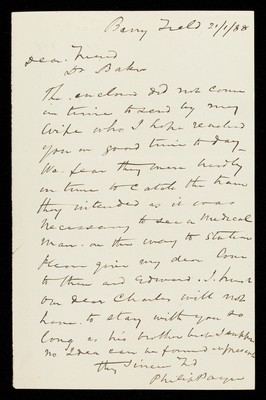 Barry Field 21/1/88
Dear Friend
Dr Baker
The enclosed did not come
in time to send by my
Wife who I hope reached
you in good time to day_
We fear they were hardly
in time to catch the train
they intended as it was
necessary to see a Medical
Man on the way to Station
Please give my dear love
to them and Edward. I trust
our dear Charles will not
have to stay with you so
long as his brother but I suppose
no Idea can be formed at present
thy Sincere Fd
Philip